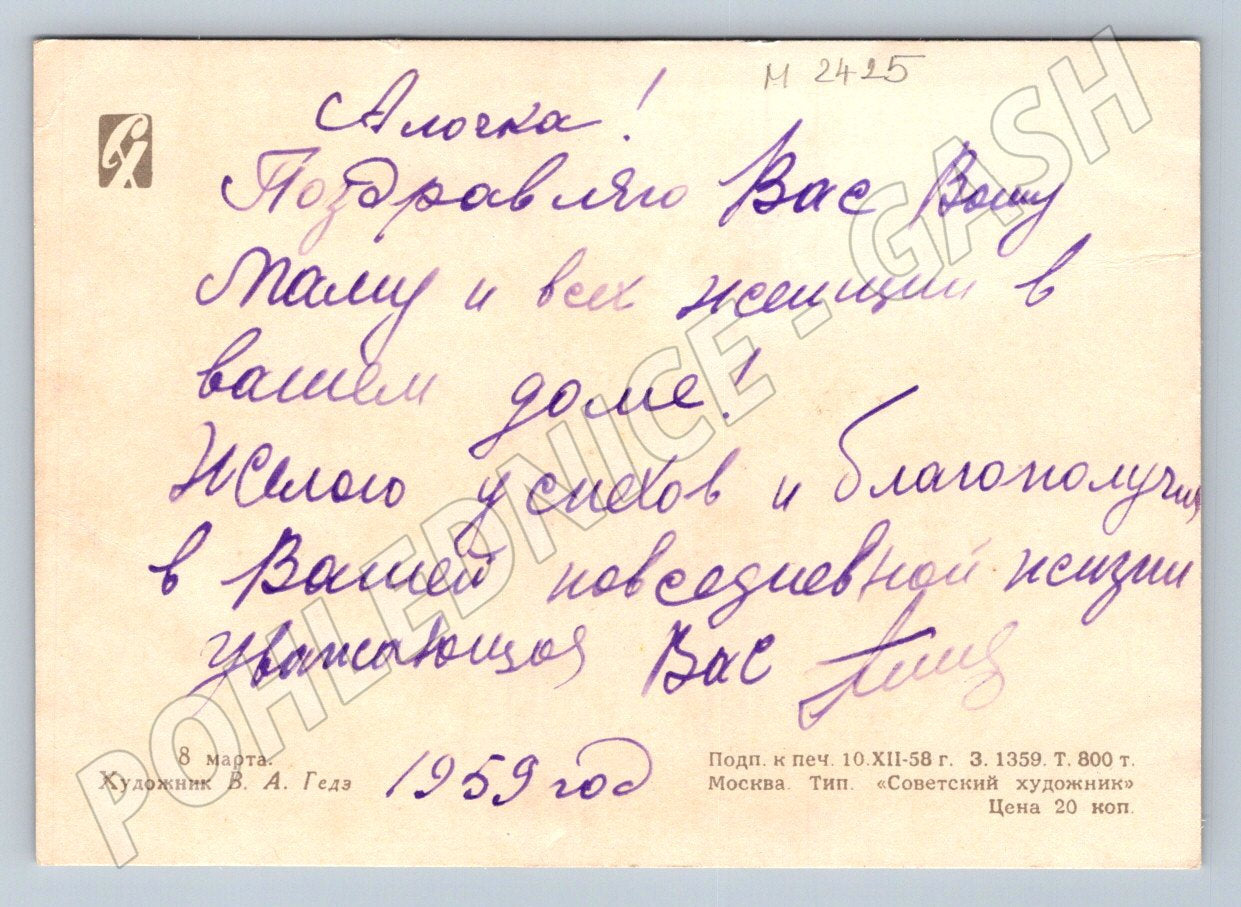 М 2425
Алочка!
Поздравляю Вас Вашу
Маму и всех женщин в
вашем доме!
Желаю успехов и благополучия
в Вашей повседневной жизни
уважающая Вас
1959 год
8 марта.
Художник В. А. Гедэ
Подп. к печ. 10.XII-58 г. З. 1359. Т. 800 т.
Москва. Тип. «Советский художник»
Цена 20 коп.
СХ
POHLEDNICE - GASH